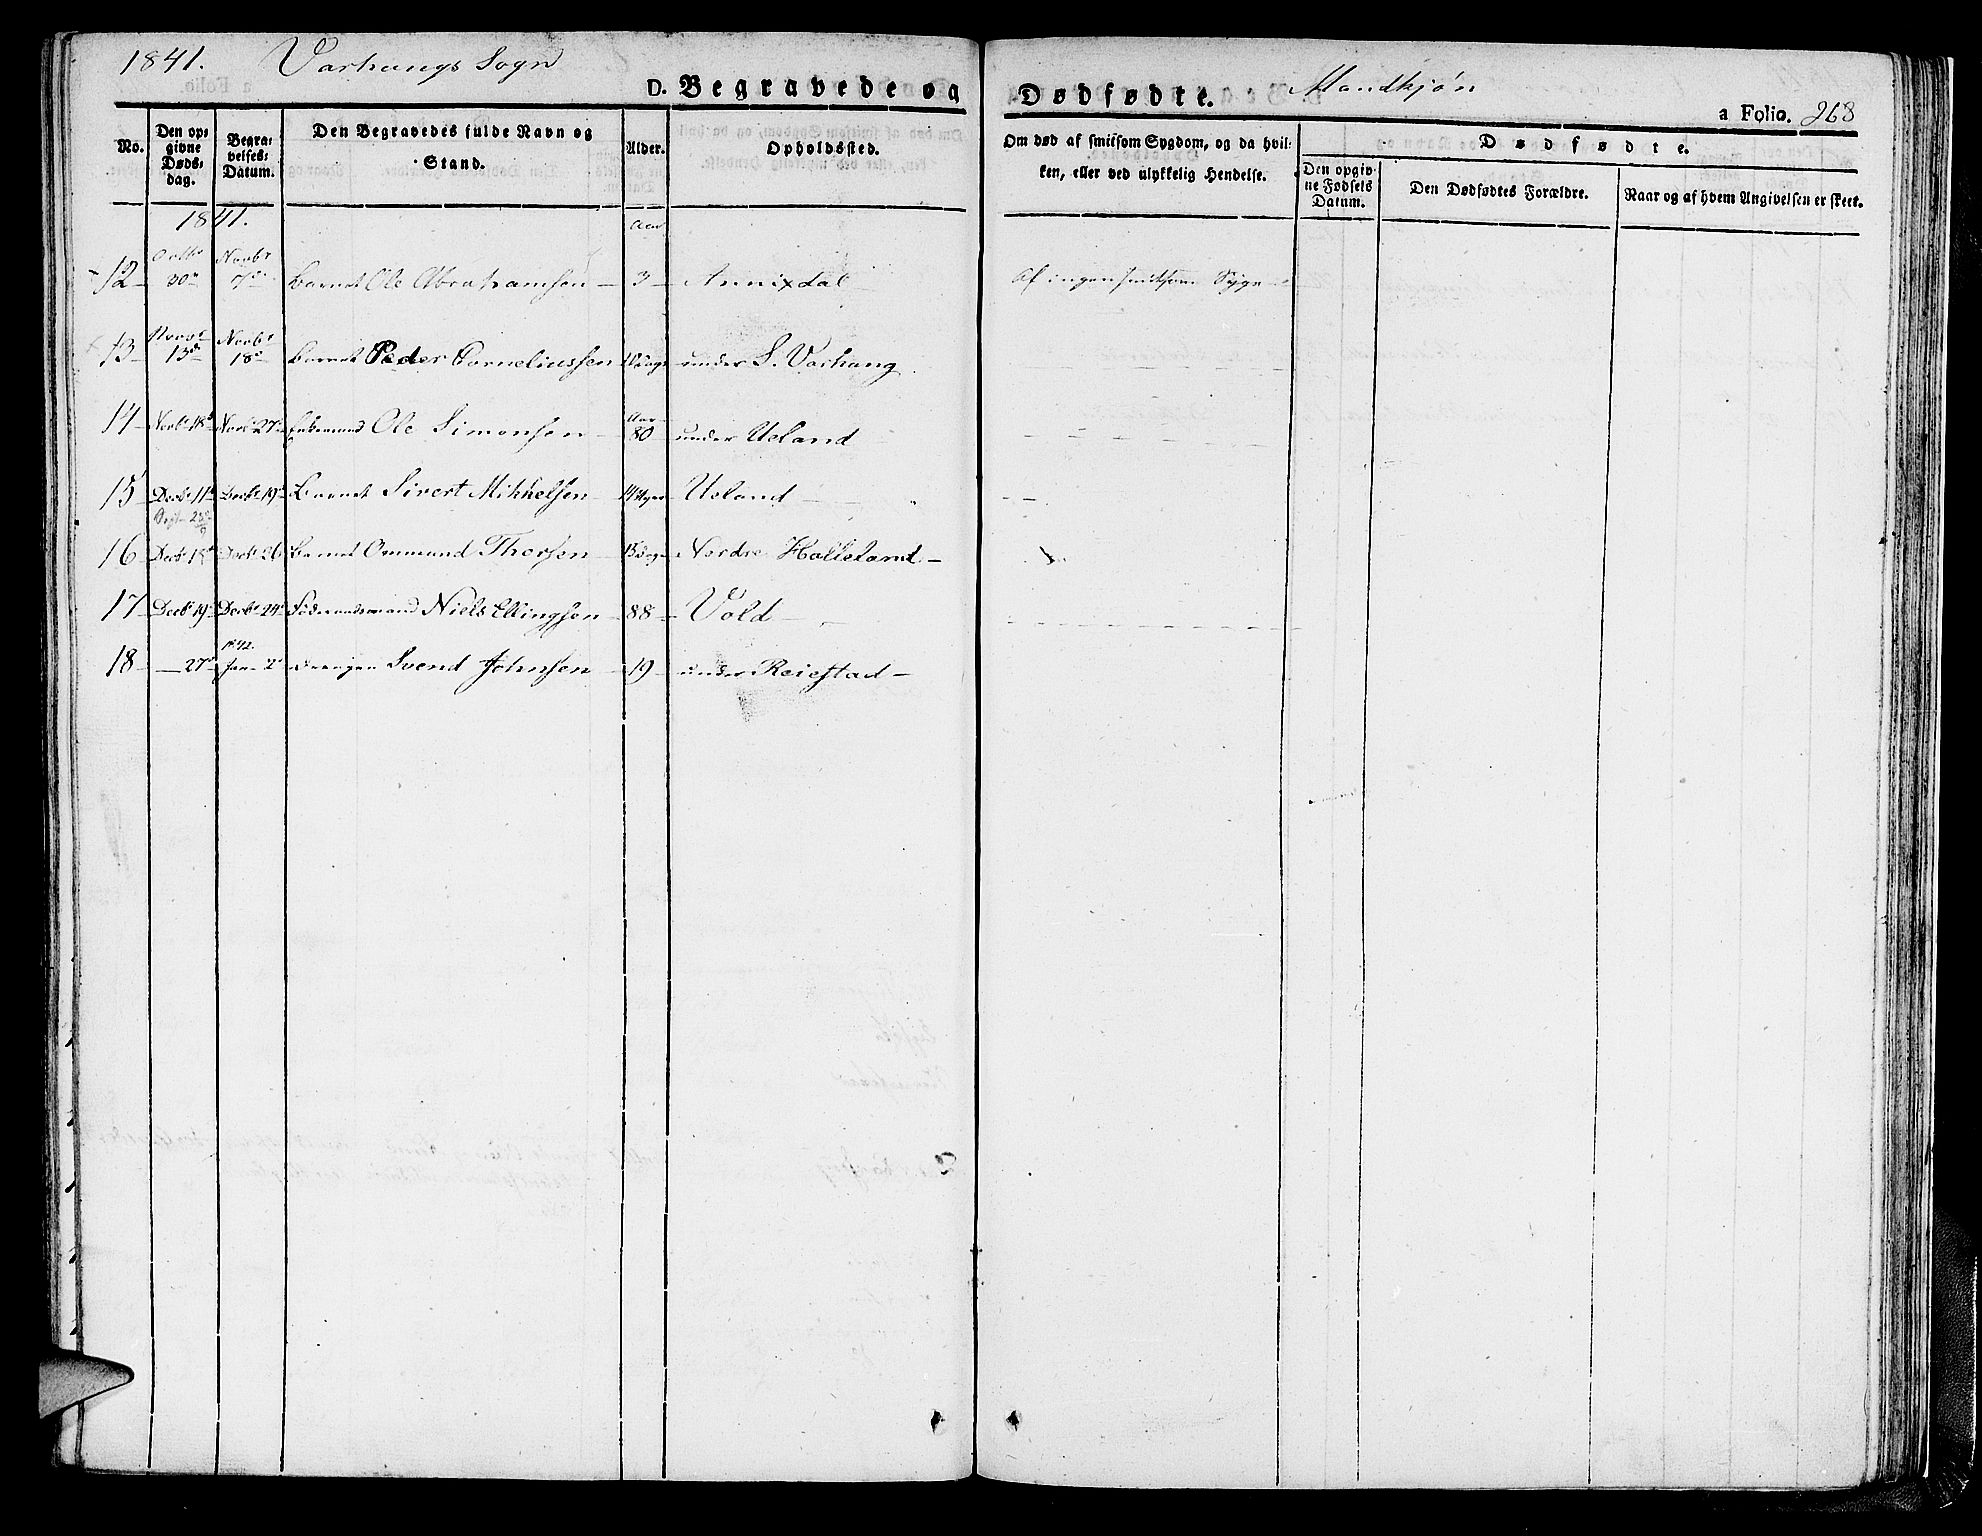 1841. Varhaugs Sogn
D. Begravede og Dødfødte. Mandkjøn
a Folio. 268
No. Den opgivne Dødsdag. Begravelses Datum. Den Begravedes fulde Navn og Stand. Alder. Opholdssted. Om død af smitsom Sygdom, og da hvilken, eller ved ulykkelig Hendelse. Dødfødte.
Den opgivne Fødsels Datum. Den Dødfødtes Forældre. Naar og af hvem Angivelsen er skeet.
1841. Aar
12 Octbr 30te Novbr 7de Barnet Ole Abrahamsen 3 Annixdal Af ingen smitsom Syge
13 Novbr 13de Novbr 18de Barnet Peder Corneliussen under S. Varhaug
14 Novbr 18de Novbr 27de Enkemand Ole Simonsen Aar 80 under Ueland
15 Decbr 11te Decbr 19de Barnet Sivert Mikkelsen 14 Uger Ueland
16 Decbr Decbr 26 Barnet Ommund Thorsen Nordre Hølleland
17 Decbr 19de Decbr 24de Føderaadsmand Niels Ellingsen 88 Vold
18 27de 1842. Jan. 2den Drengen Svend Johnsen 19 under Reiestad